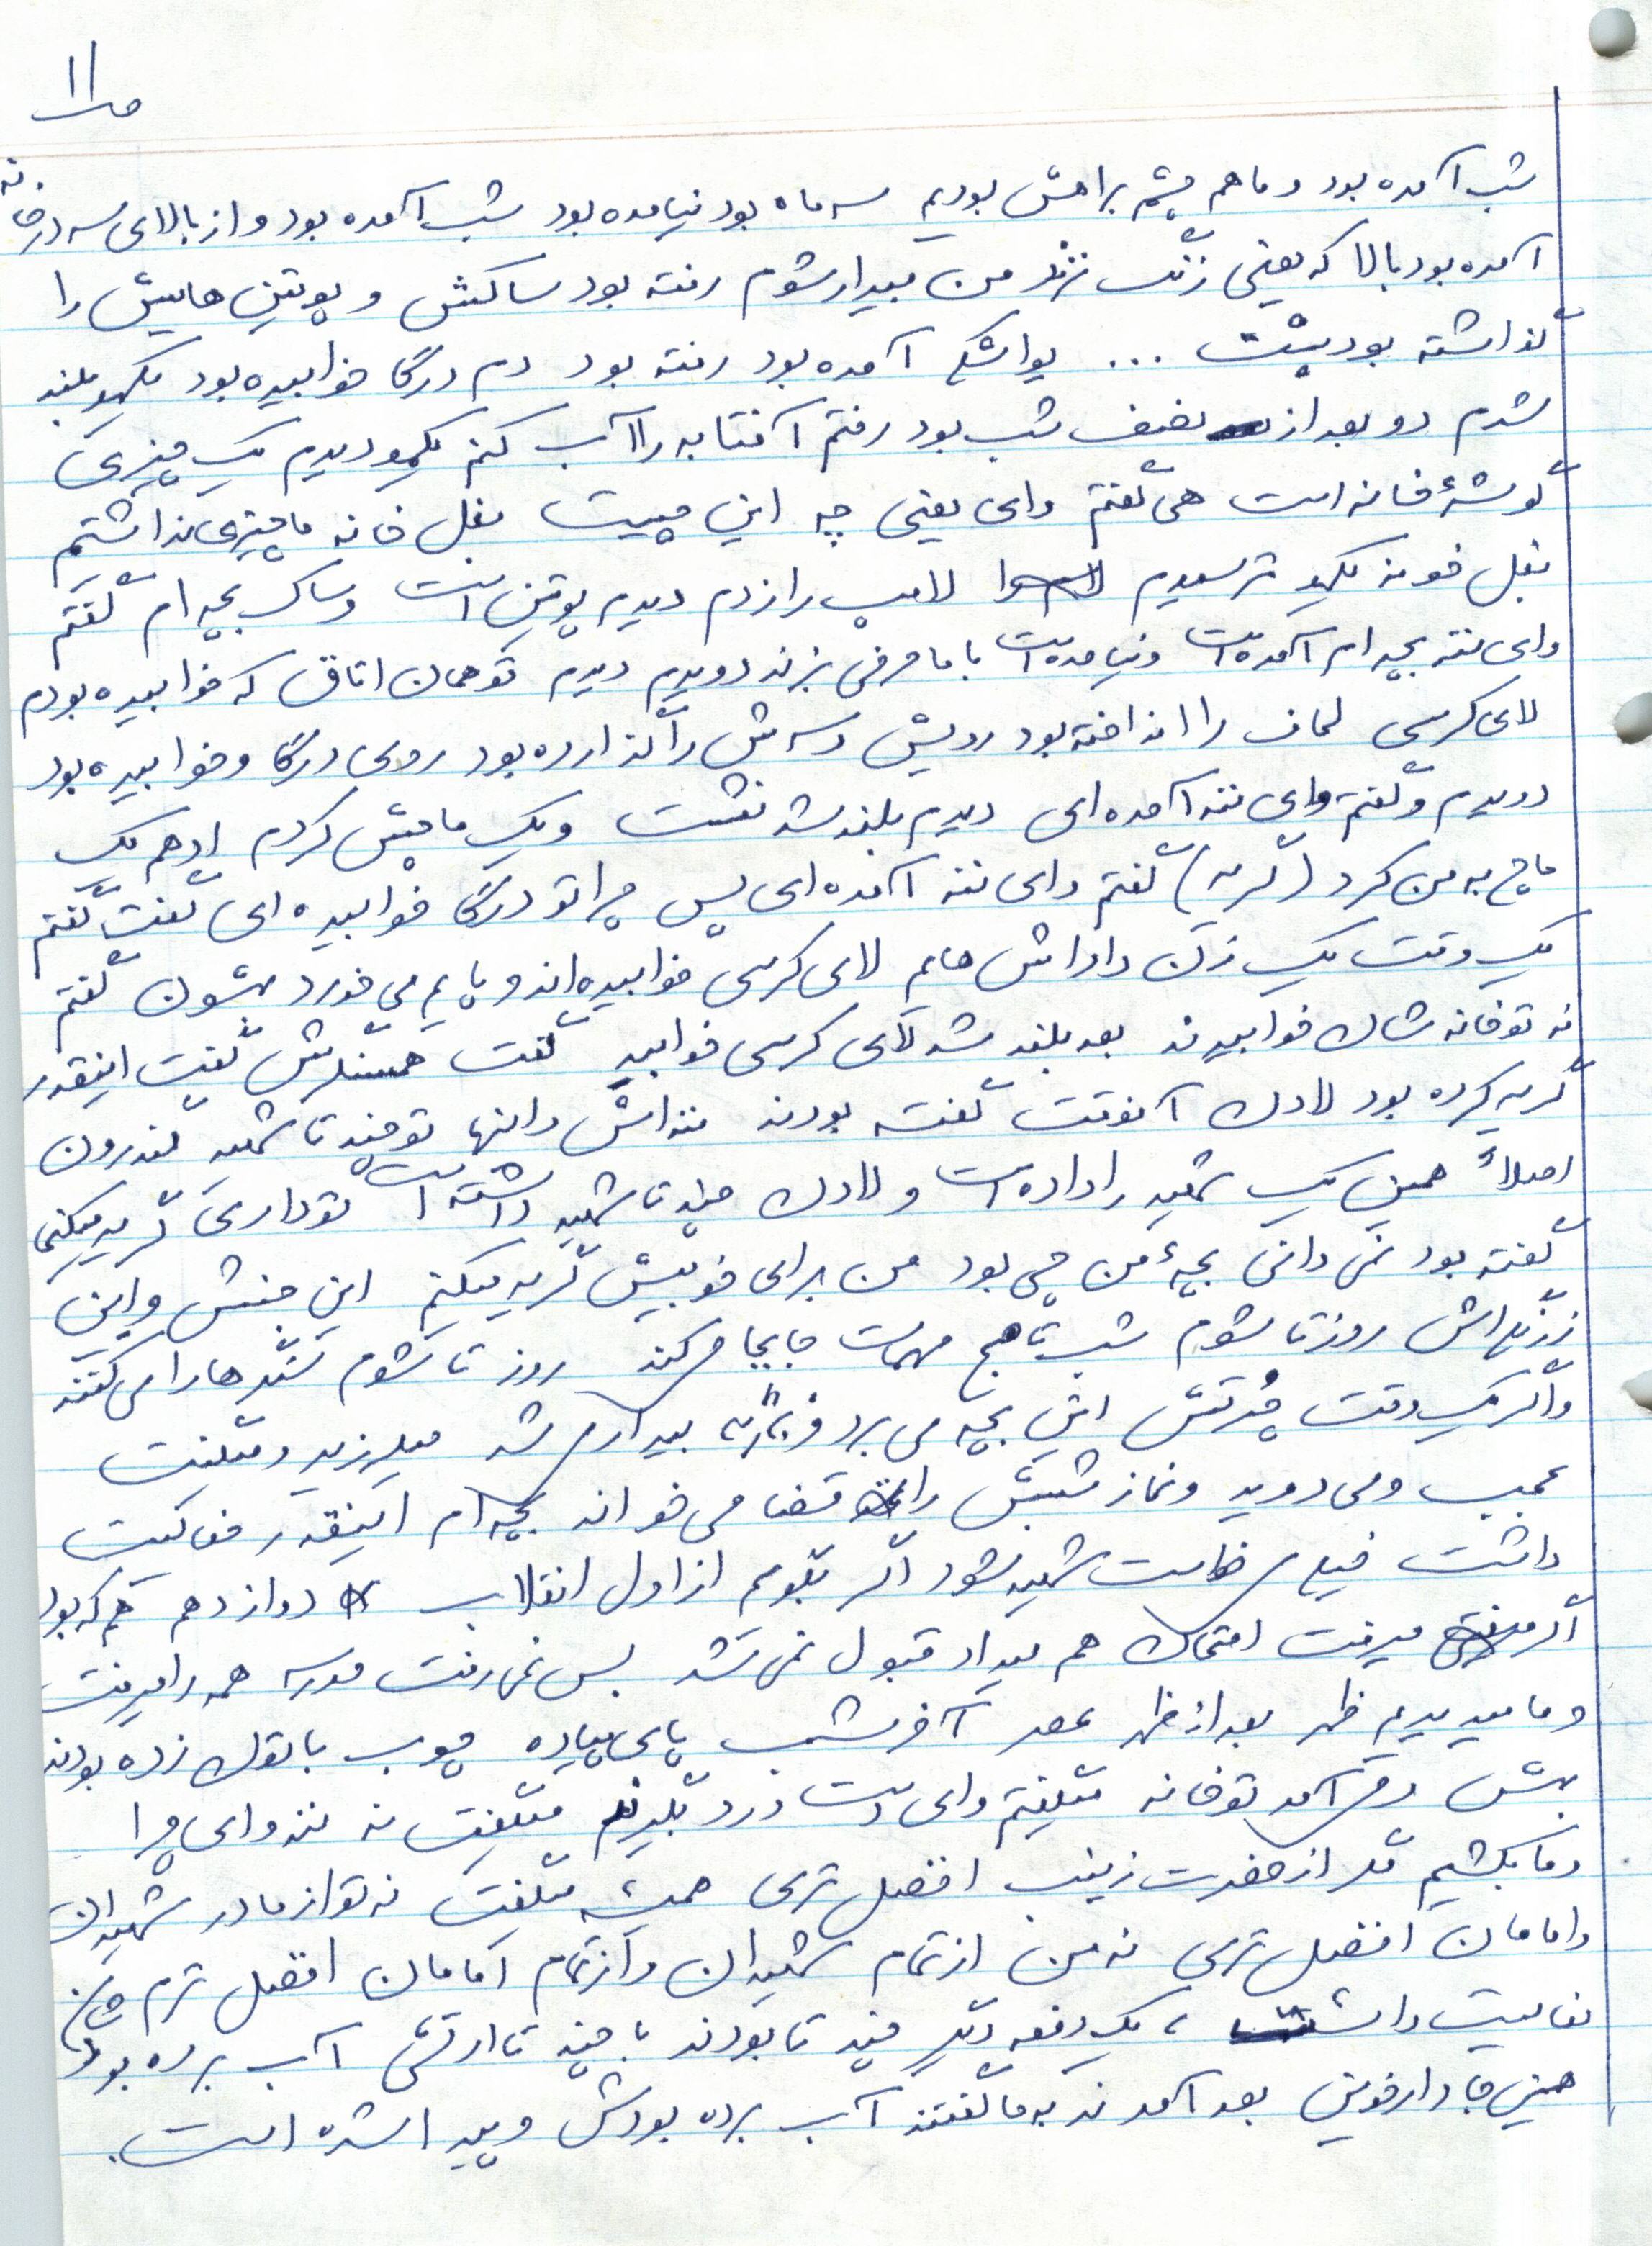 ص ۱۱
شب آمده بود و ما هم چشم براهش بودیم سه ماه بود نیامده بود شب آمده بود و از بالای سه درخانه
آمده بود بالا که یعنی زنگ نزند من بیدار شوم رفته بود ساکش و پوتین هایش را
گذاشته بود پشت ... یواشکی آمده بود رفته بود دم درگا خوابیده بود یکهو بلند
شدم دو بعد از نصف شب بود رفتم آفتابه را آب کنم یکهو دیدم یک چیزی
گوشهٔ خانه است هی گفتم وای یعنی چه این چیست بغل خانه ما چیزی نداشتیم
بغل خونه یکهو ترسیدم لامپ را زدم دیدم پوتین است و ساک بچه ام گفتم
وای ننه بچه ام آمده است و نیامده است با ما حرفی بزند دویدم دیدم تو همان اتاق که خوابیده بودم
لای کرسی لحاف را انداخته بود رویش و سرش را گذارده بود روی درگا و خوابیده بود
دویدم و گفتم وای ننه آمده ای دیدم بلند شد نشست و یک ماچش کردم او هم یک
ماچ به من کرد (گریه) گفتم وای ننه آمده ای پس چرا تو درگا خوابیده ای گفت گفتم
یک وقت یک زن داداش هایم لای کرسی خوابیده اند و پایم می خورد بهشون گفتم
نه تو خانه شان خوابیدند بعد بلند شد لای کرسی خوابید گفت همسنگرش گفت اینقدر
گریه کرده بود لادن آنوقت گفته بودند ننه اش و اینها تو چند تا شهید اندرون
اصلاً همین یک شهید را داده است و لادن چند تا شهید داشته است تو داری گریه میکنی
گفته بود نمی دانی بچهٔ من چی بود من برای خوبیش گریه میکنم این جنبش و این
زرنگی اش روز تا شوم شب تا صبح مهمات جابجا می کند روز تا شوم سنگرها را می کنند
و اگر یک وقت چُرتش این بچه می برد و بیدارم شد میلرزید و میگفت
عجب و می دوید و نماز شبش را قضا می خواند بچه ام اینقدر فعالیت
داشت خیلی می خواست شهید شود اگر بگویم از اول انقلاب دوازدهم هم که بود
اگر میرفت امتحان هم میداد قبول نمی شد بس نمی رفت مدرسه همه را میرفت
و ما میدیدیم ظهر بعد از ظهر عصر آخر شب پای پیاده چوب باتون زده بودند
بهش و می آمد تو خانه میگفتم وای دست درد بگیرند میگفت نه ننه وای چرا
و ما بکشیم مگر از حضرت زینب افضل تری همیشه میگفت نه تو از مادر شهیدان
و امامان افضل تری نه من از تمام شهیدان و از تمام امامان افضل ترم
فعالیت داشت ، یک دفعه دیگر چند تا بودند با چند تا ارتشی آب برده بود
همین جا دارخوین بعد آمدند به ما گفتند آب برده بودش و پیدا شده است.